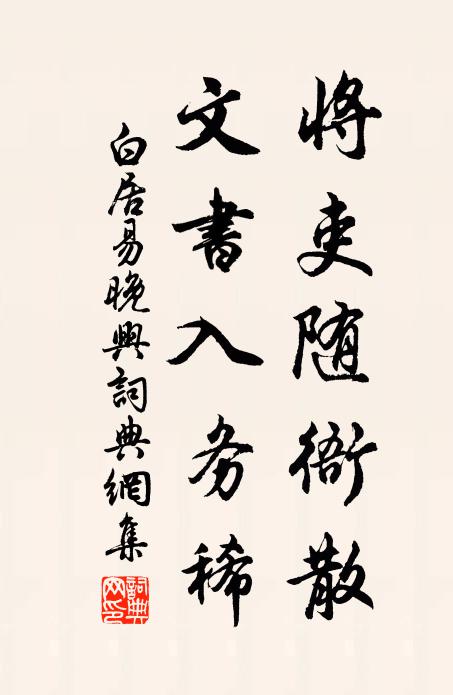 將吏随衙散
文書入务稀
白居易晚興詞典網集
詞典网印